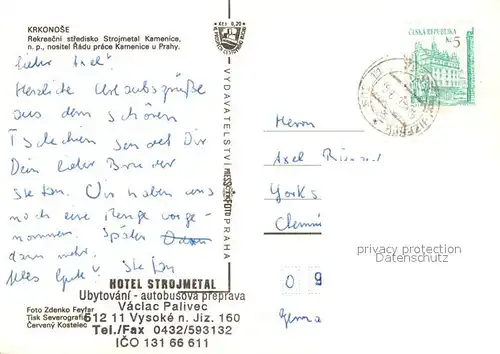 KRKONOŠE
Rekreační středisko Strojmetal Kamenice,
n. p., nositel Řádu práce Kamenice u Prahy.
Lieber Axel!
Herzliche Urlaubsgrüße
aus dem schönen
Tschechien sendet Dir
Dein lieber Bruder
Stefan. Wir haben uns
noch eine Menge vorge-
nommen. Später
dann mehr.
Alles Gute! Stefan
HOTEL STROJMETAL
Ubytování - autobusová přeprava
Václav Palivec
512 11 Vysoké n. Jiz. 160
Tel./Fax 0432/593132
IČO 131 66 611
Foto Zdenko Feyfar
Tisk Severografie
Červený Kostelec
Kčs 0,20
VYDAVATELSTVÍ PRESSFOTO PRAHA
ČESKÁ REPUBLIKA
Kč 5
Herrn
Axel
0 9
privacy protection
Datenschutz